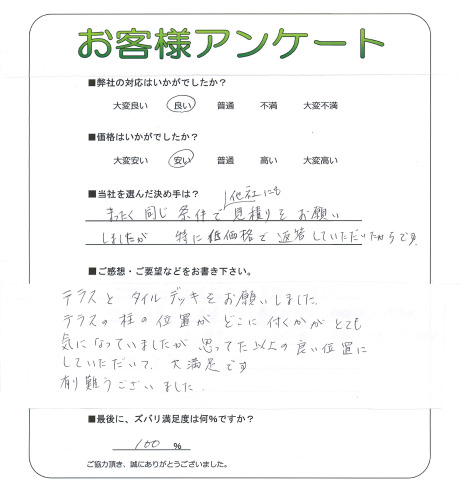 お客様アンケート
■弊社の対応はいかがでしたか？
大変良い 良い 普通 不満 大変不満
■価格はいかがでしたか？
大変安い 安い 普通 高い 大変高い
■当社を選んだ決め手は？
他社にも
まったく同じ条件で見積りをお願い
しましたが 特に低価格で返答していただいたからです
■ご感想・ご要望などをお書き下さい。
テラスとタイルデッキをお願いしました。
テラスの柱の位置がどこに付くかがとても
気になっていましたが思ってた以上の良い位置に
していただいて、大満足です
有難うございました。
■最後に、ズバリ満足度は何％ですか？
100 ％
ご協力頂き、誠にありがとうございました。